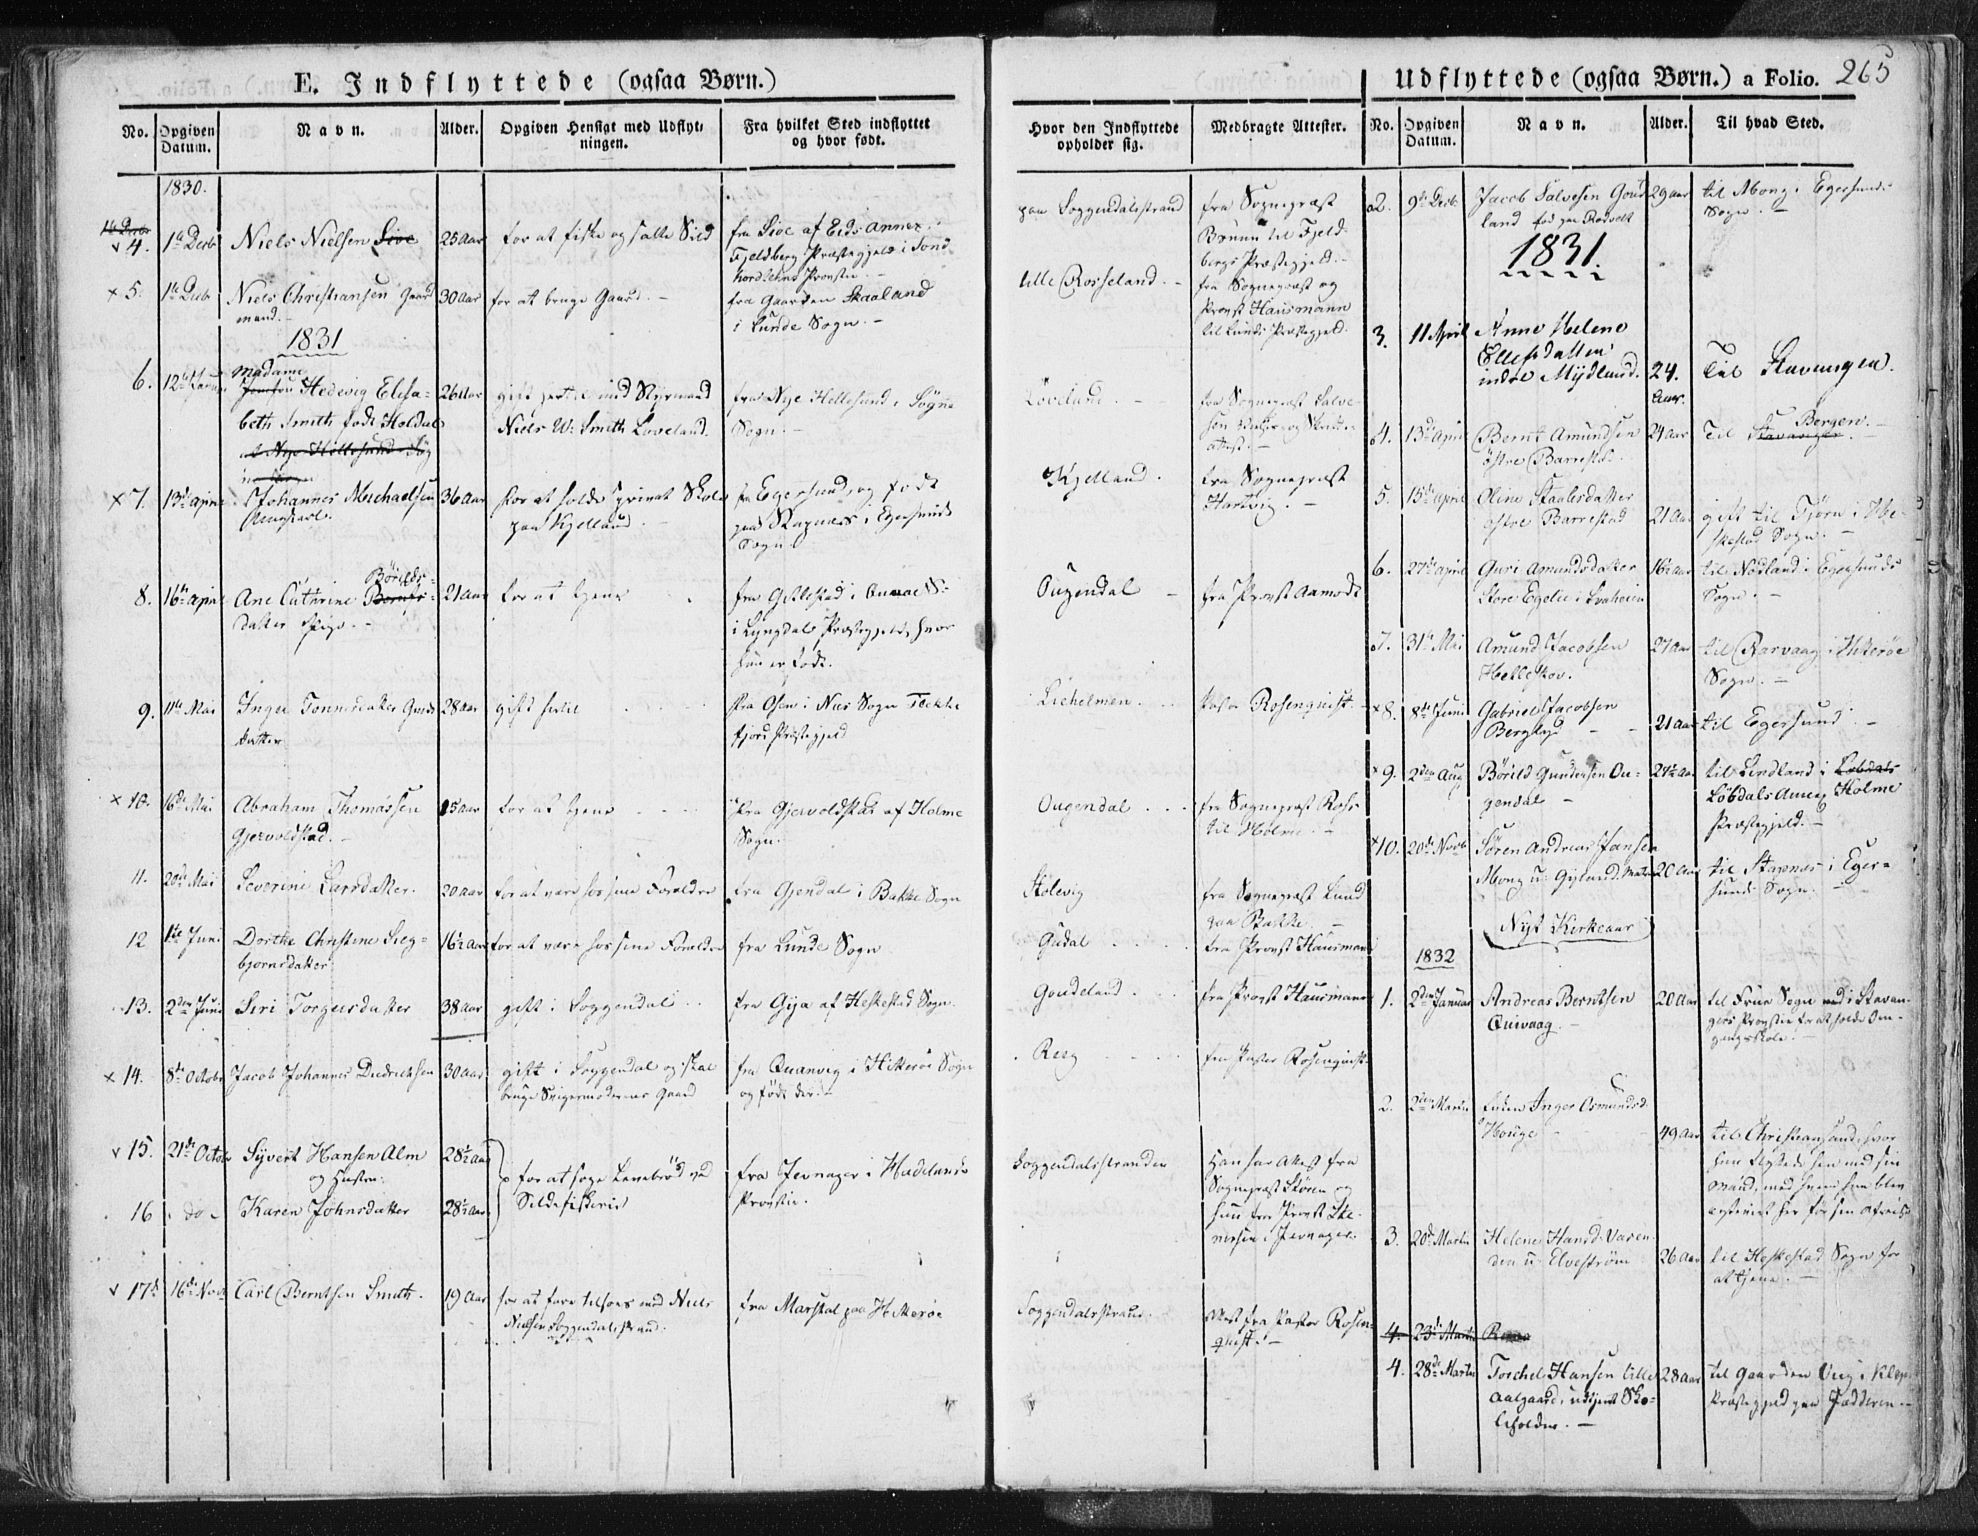 E. Indflyttede (ogsaa Børn.)
No. Opgiven Datum. Navn. Alder. Opgiven Hensigt med Udflytningen. Fra hvilket Sted indflyttet og hvor født.
1830.
4. 1te Decbr Niels Nielsen Sioe 25 Aar for at fiske og salte Sild fra Sioe af Eids Annex i
Fjeldberg Præstegjeld i Sond
hordlehns Provstie. -
× 5. 1te Decbr Niels Christiansen Gaard 30 Aar for at bruge Gaard. - fra Gaarden Skaaland
mand. - i Lunde Sogn. -
1831
Madame
6. 12te Hedevig Elisa= 26 Aar gift hertil med Styrmand fra Nye Hellesund i Søgne
beth Smith født Holdal Niels W. Smith Løveland. Sogn. -
× 7. 13de April Johannes Michaelsen 36 Aar for at holde privat Skole fra Egersund, og født
Ungkarl. paa Kjelland. - paa i Egersunds
Sogn.
Børilds=
8. 16te April Ane Cathrine 21 Aar for at tjene fra Gitlestad i
datter Pige. - i Lyngdals Præstegjeld, hvor
hun er født.
9. 11te Mai Inger Tønnesdatter 28 Aar gift hertil fra Osen i Næs Sogn Fække
datter fjord Præstegjeld
× 10. 16de Mai Abraham Thomassen 15 Aar for at tjene fra Gjervoldstad af Holme
Gjervoldstad. - Sogn.
11. 20de Mai Severine Larsdatter. 20 Aar for at være hos sine Forældre fra Gjendal i Bakke Sogn
12 1te Juni Dorthe Christine Sieg= 16½ Aar for at være hos sine Forældre fra Lunde Sogn
bjørnsdatter
13. 2den Juni Siri Torgersdatter 38 Aar gift i Soggendal .. fra Gya af Heskestad Sogn.
× 14. 8de Octobr Jacob Johannes Diedrichsen 30 Aar gift i Soggendal og skal fra Quanvig i Hitterøe Sogn
bruge Svigermoderens Gaard og født der. -
v 15. 21de Octobr Syvert Hansen Alm 28½ Aar
og Hustru: for at søge Levebrød ved fra Jevnager i Hadelands
16 - do - Karen Johnsdatter 28½ Aar Sildefiskerie Provstie.
v 17de 16de Novbr Carl Berntsen Smith. 19 Aar for at fare tilsøes med Niels fra Marstal paa Hitterøe
Nielsen Soggendalsstrand.
Hvor den Indflyttede opholder sig. Medbragte Attester.
paa Soggendalsstrand fra Sognepræst
Bruun til Fjeld
bergs Præstegjeld. -
Lille Rosseland. - fra Sognepræst og
Provst Hausmann
til Lunds Præstegjeld.
Løveland. - fra Sognepræst Salve
sen
Kjelland. fra Sognepræst
Hartvig. -
Ougendal - fra Provst Aamodt
Liehelmen. Pastor Rosenquist. -
Ougendal fra Sognepræst
til Holme. -
Stølevig fra Sognepræst Lund
paa Bakke. -
Gudal fra Provst Hausmann
Goudeland fra Provst Hausmann
Berg fra Pastor Rosenquist
Soggendalsstranden Han har Attest fra
Sognepræst Støren og
hun fra Provst
i Jevnager.
Soggendalsstrand. Attest fra Pastor Rosen=
quist. -
Udflyttede (ogsaa Børn.) a Folio. 265
No. Opgiven Datum. Navn. Alder. Til hvad Sted.
2. 9de Decbr Jacob Salvesen Goud 29 Aar til Mong i Egersunds
land fød paa Sogn. -
1831.
3. 11 April Anne Helene
Ellefsdatter
indre Mydland. 24. Aar. Til Stavanger.
4. 13de April Bernt Amundsen 24 Aar Til Bergen. -
østre Barrestad.
5. 15de April Oline Staalesdatter
østre Barrestad 21 Aar gift til Tjørn i He=
skestad Sogn. -
6. 27de April Guri Amundsdatter 16½ Aar til Nodland i Egersunds
Store Egelie i Svaheien Sogn. -
7. 31te Mai Amund Jacobsen 27 Aar til Rarvaag i Hitterøe
Helleskov. Sogn. -
×8. 8de Juni Gabriel Jacobsen
Berglyd - - 21 Aar til Egersund. -
×9. 2den Aug Børild Gundersen Ou= 27½ Aar til Lindland i
gendal - Løbdals Annex Holme
Præstegjeld. -
×10. 20de Novbr Søren Andreas Jansen
Mong u: 20 Aar til Stapnes i Eger=
sunds Sogn. -
Nyt Kirkeaar
1832
1. 2den Januar Andreas Berntsen 20 Aar til Frue Sogn i Stavan
Quivaag. - gers Provstie for at holde Om
gangsskole. -
2. 2den Martii Enken Inger Osmundsd.
Houge - - 49 Aar til Christiansand, hvor
hun flyttede hen med sin
Mand, med hvem hun blev
copuleret her før sin Afreise
3. 20de Martii Helene Hansd. Varen
den u: Elvestrøm 26 Aar til Heskestad Sogn for
at tjene. -
4. 23de Martii
4. 28de Martii Torchel Hansen Lille 28 Aar til Gaarden Viig i Klep
Aalgaard, udtjent Sko=
leholder. - Præstegjeld paa Jædderen. -